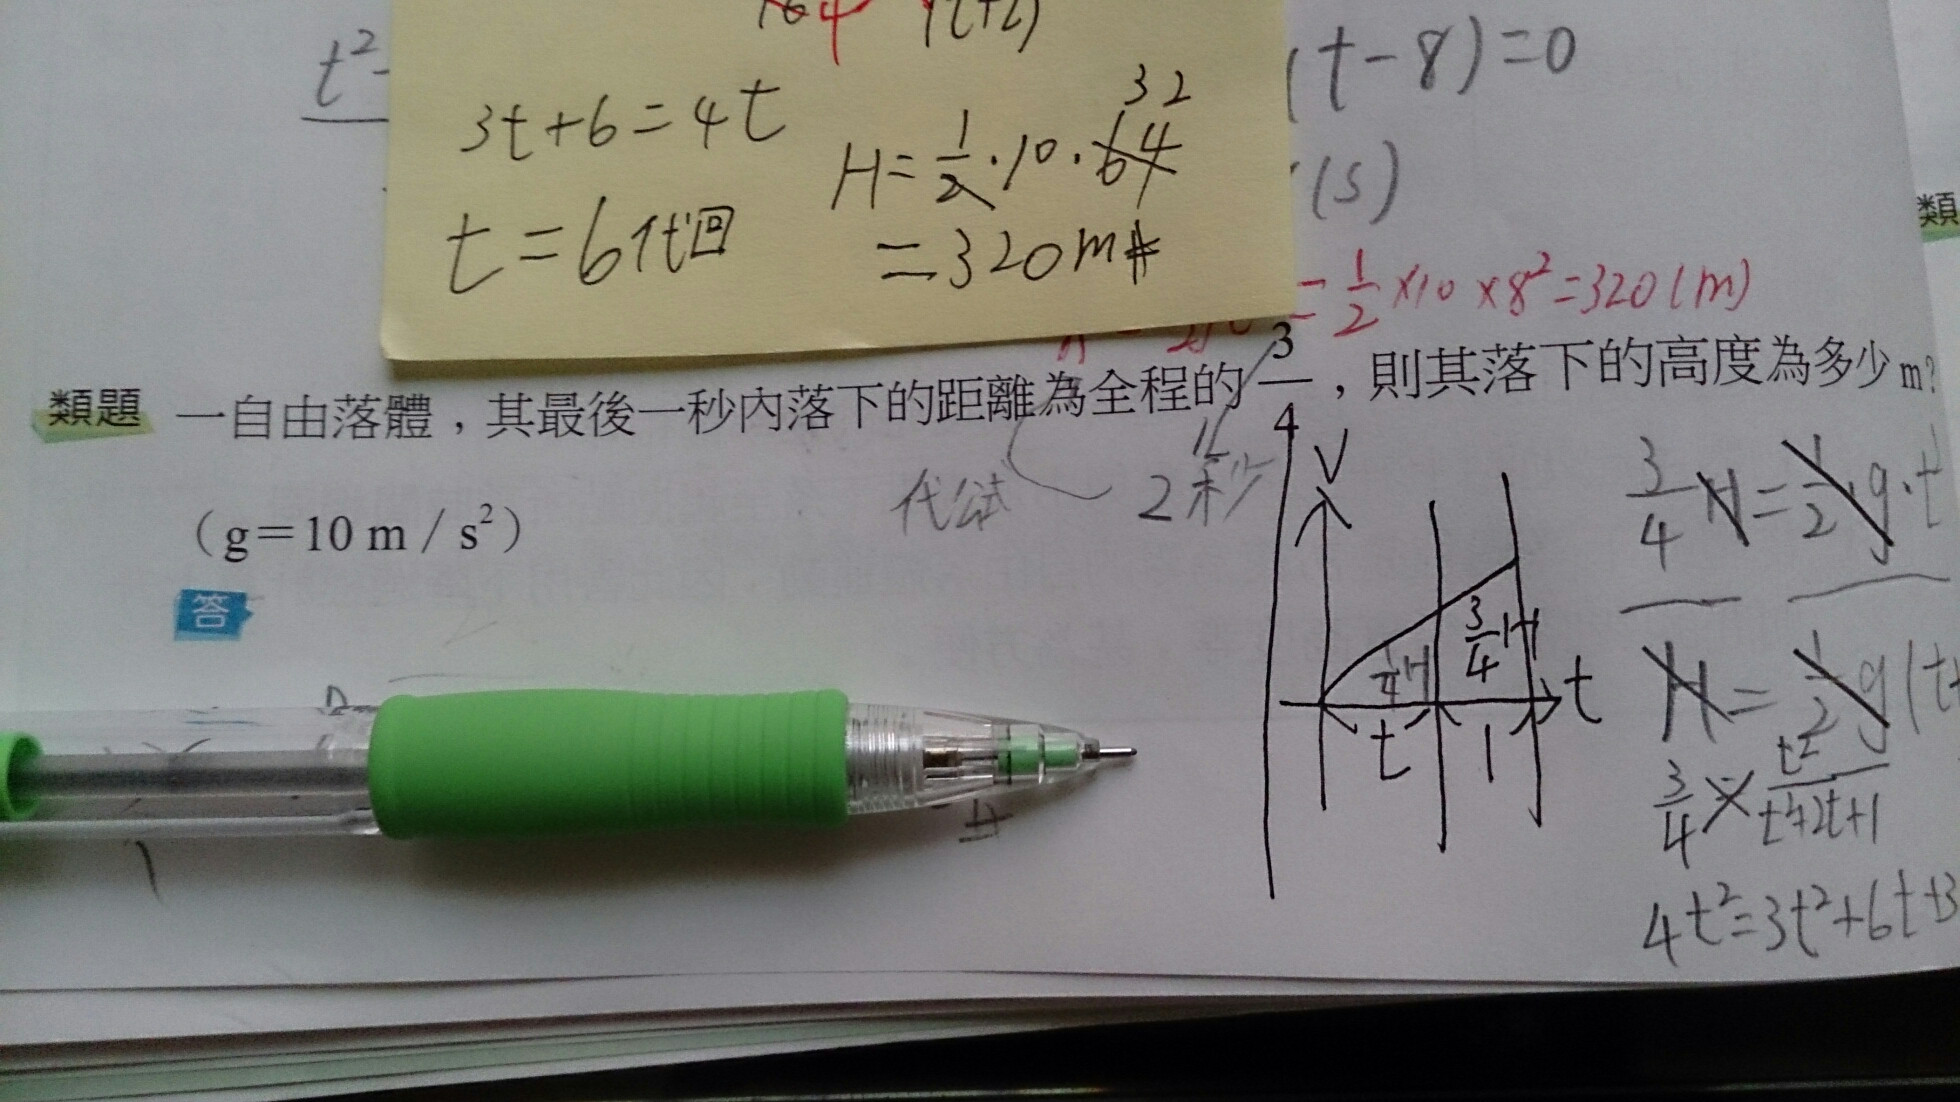 t²-
3t+6=4t
t=6代回
H=1/2·10·64
32
=320m#
(t-8)=0
(s)
=1/2×10×8²=320(m)
類
類題 一自由落體，其最後一秒內落下的距離為全程的3/4，則其落下的高度為多少m?
(g=10 m/s²)
答
代公式
2秒
V
1/4H
3/4H
t
t
1
3/4H=1/2·g·t
H=1/2g(t+
3/4 t²/t²+2t+1
4t²=3t²+6t+3